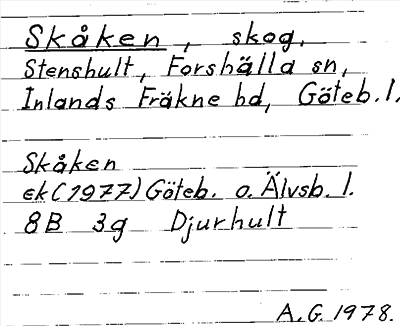 Skåken, skog,
Stenshult, Forshälla sn,
Inlands Fräkne hd, Göteb. l.
Skåken
ek (1977) Göteb. o. Älvsb. l.
8B 3g Djurhult
A. G. 1978.